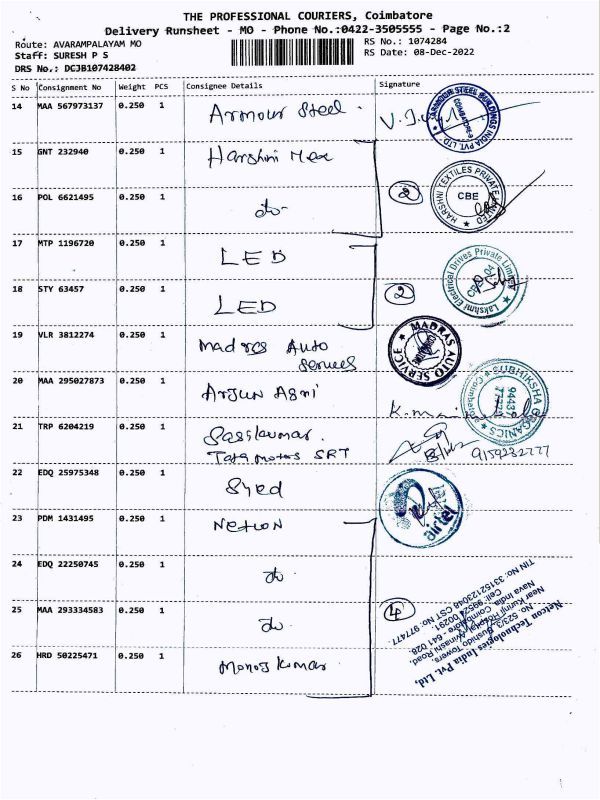 THE PROFESSIONAL COURIERS, Coimbatore
Delivery Runsheet - MO - Phone No.:0422-3505555 - Page No.:2
Route: AVARAMPALAYAM MO
RS No.: 1074284
Staff: SURESH P S
RS Date: 08-Dec-2022
DRS No.: DCJB107428402
S No Consignment No Weight PCS Consignee Details Signature
14 MAA 567973137 0.250 1 Armour Steel
ARMOUR STEEL BUILDINGS INDIA PVT LTD COIMBATORE
15 GNT 232940 0.250 1 Harshni
16 POL 6621495 0.250 1 do 2
HARSHNI TEXTILES PRIVATE LIMITED CBE
17 MTP 1196720 0.250 1 LED
18 STY 63457 0.250 1 LED 2
Lakshmi Electrical Drives Private Limited
19 VLR 3812274 0.250 1 Madras Auto
Services
MADRAS AUTO SERVICE
20 MAA 295027873 0.250 1 Arjun Agni
SUBHIKSHA ORGANICS Coimbatore
21 TRP 6204219 0.250 1 Sasikumar.
Tata motors SRT 9159232777
22 EDQ 25975348 0.250 1 Syed
airtel
23 PDM 1431495 0.250 1 Netcon
24 EDQ 22250745 0.250 1 do
25 MAA 293334583 0.250 1 do 4
26 HRD 50225471 0.250 1 Manoj Kumar
Netcon Technologies India Pvt. Ltd,
No. 523/3, Bushido Towers,
Near Kurinji Hospital, Avinashi Road,
Nava India, Coimbatore - 641 028.
Cell: 99524 00291.
TIN No: 33152123048 CST No: 977477.